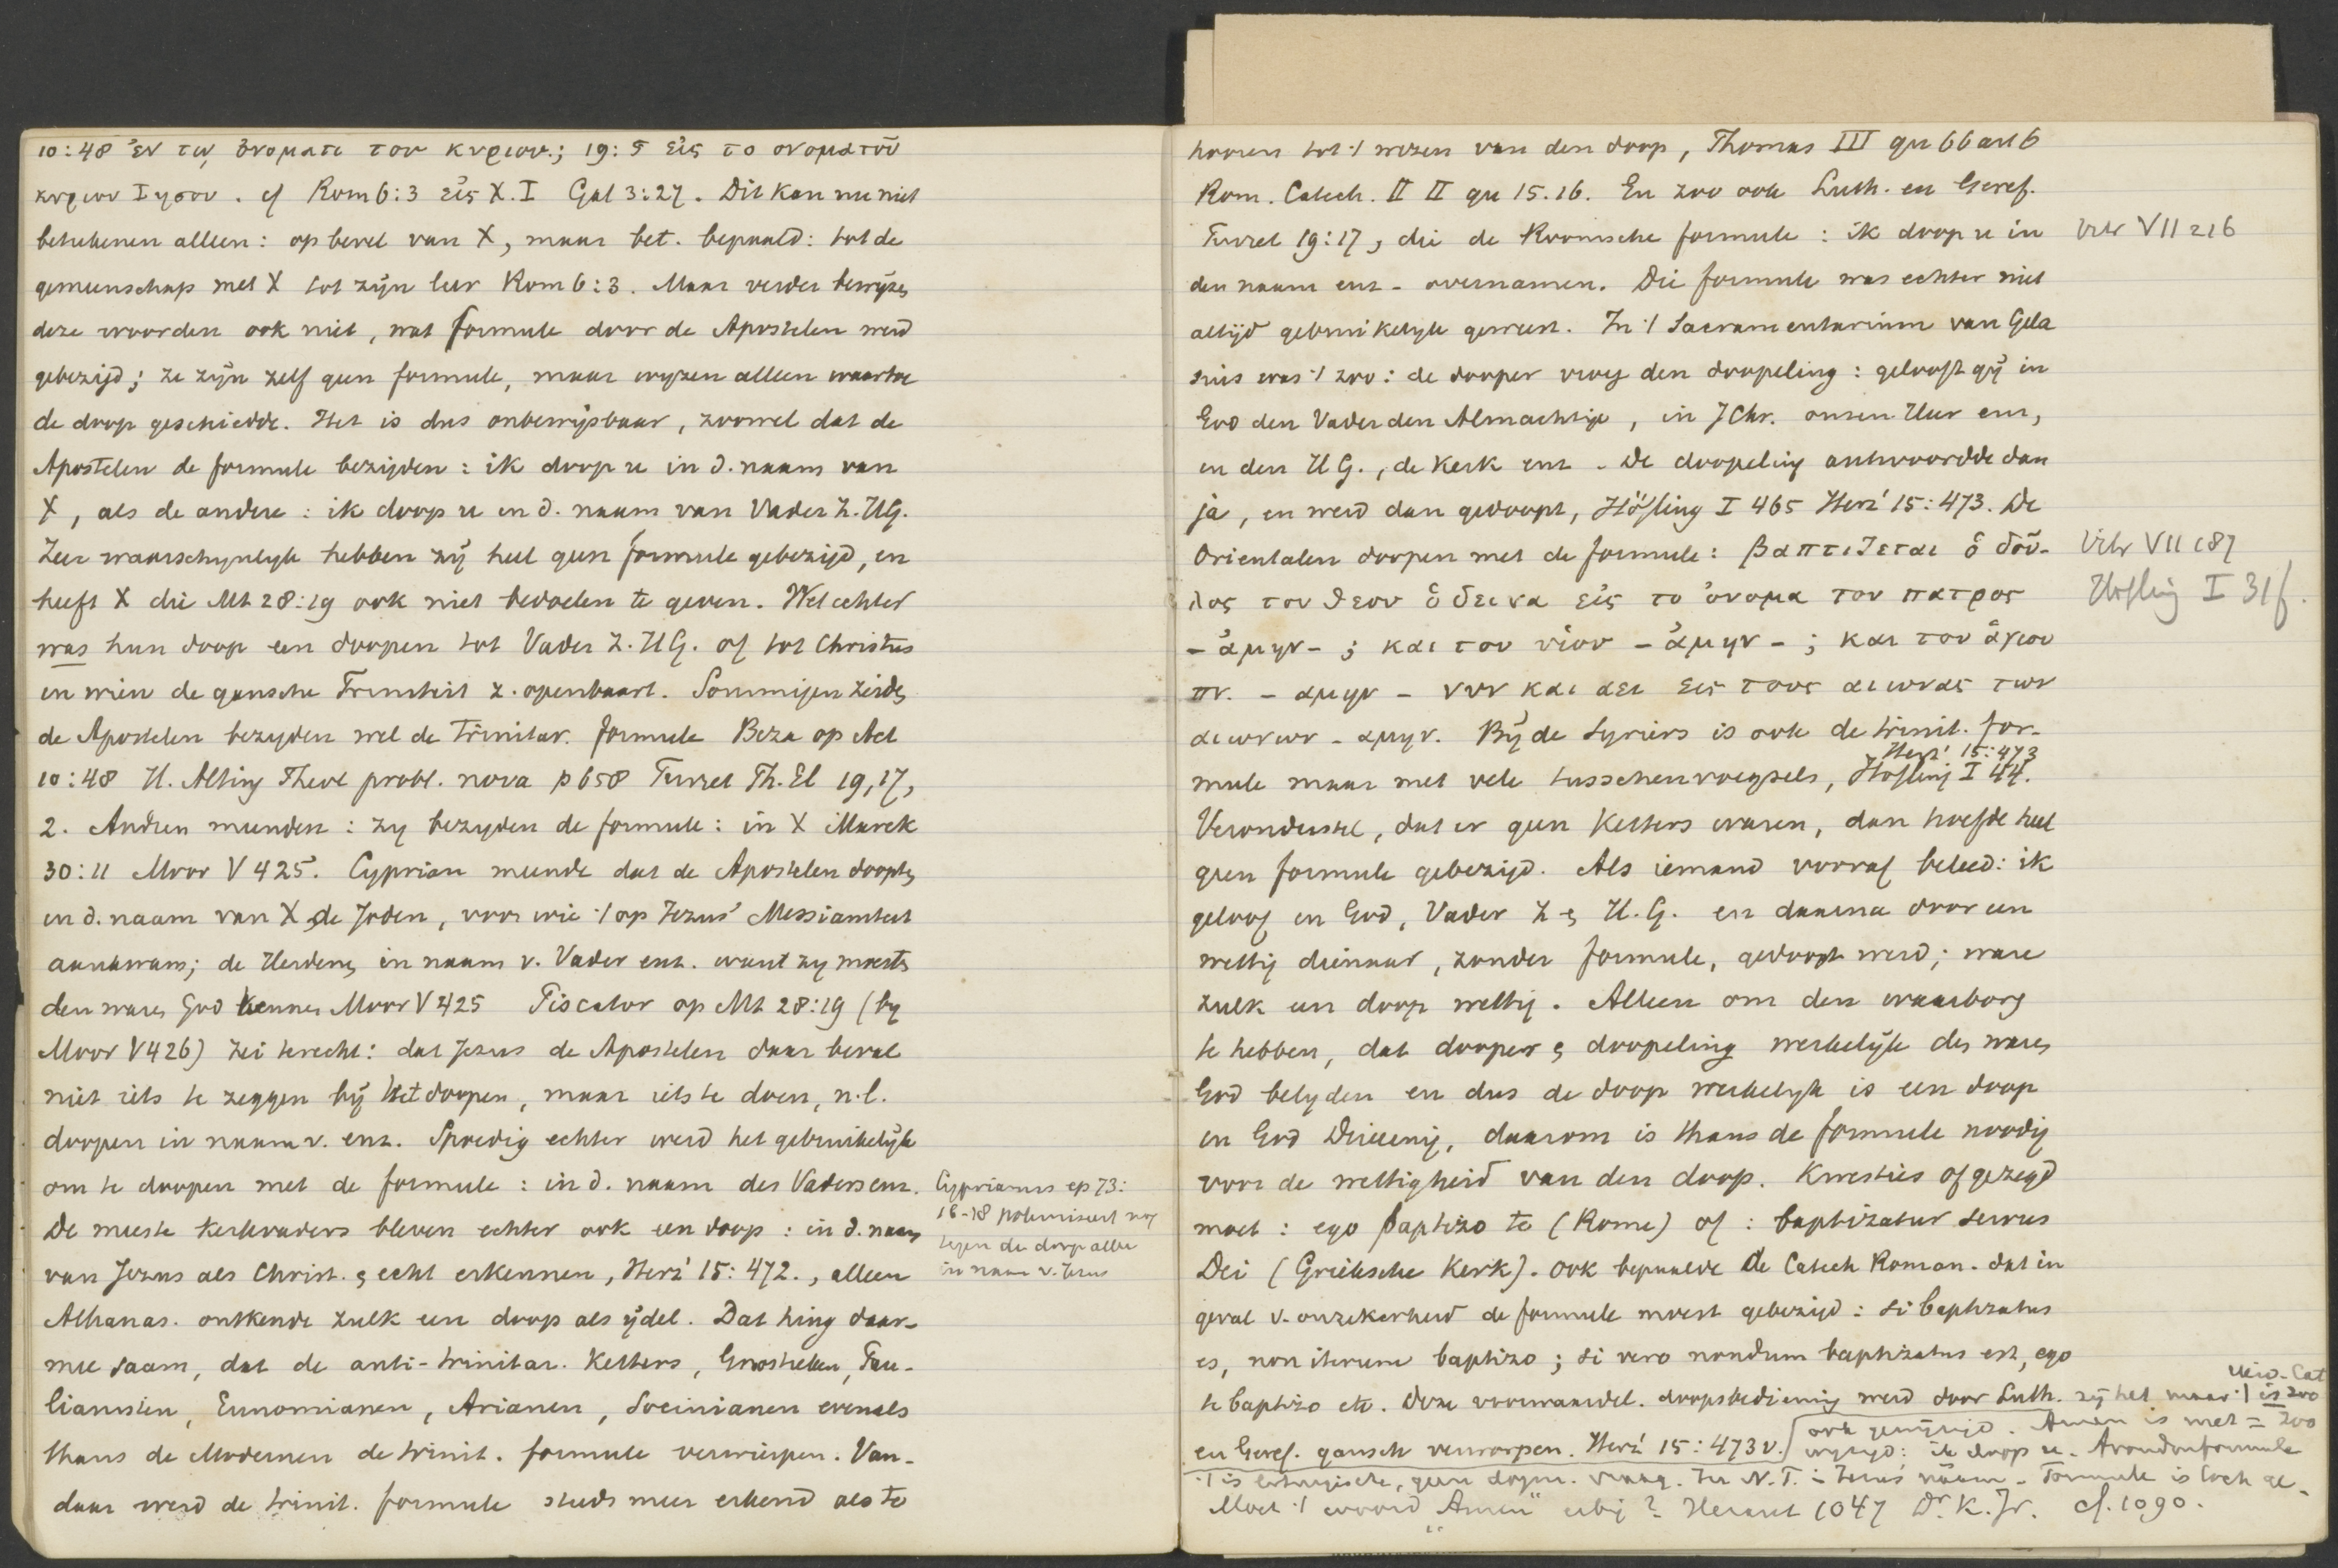 10:48 ἐν τῳ ὀνοματι του κυριου.; 19:5 εἰς το ονομα τοῦ
κυριου Ιησου. cf Rom 6:3 εἰς X. I Gal 3:27. Dit kan nu niet
beteekenen alleen: op bevel van X, maar bet. bepaald: tot de
gemeenschap met X tot zijn leer Rom 6:3. Maar verder bewijzen
deze woorden ook niet, wat formule door de Apostelen werd
gebezijd; ze zijn zelf geen formule, maar wyzen alleen waartoe
de doop geschiedde. Het is dus onbewijsbaar, zoowel dat de
Apostelen de formule bezijden: ik doop u in d. naam van
X, als de andere: ik doop u in d. naam van Vader Z. HG.
Zeer waarschynlyk hebben zij heel geen formule gebezijd, en
heeft X die Mt 28:19 ook niet bedoelen te geven. Wel echter
was hun doop een doopen tot Vader Z. HG. of tot Christus
in wien de gansche Triniteit z. openbaart. Sommigen zeiden
de Apostelen bezyden wel de Trinitar. formule Beza op Act
10:48 H. Alting Theol probl. nova p 658 Turret Th. El 19,17,
2. Andren meenden: zy bezyden de formule: in X Marck
30:11 Moor V 425. Cyprian meende dat de Apostelen doopten
in d. naam van X de Joden, voor wie 't op Jezus' Messianiteit
aankwam; de Heidenen in naam v. Vader enz. want zy moesten
den waren God kennen Moor V 425 Piscator op Mt 28:19 (by
Moor V 426) zei terecht: dat Jezus de Apostelen daar beval
niet iets te zeggen bij het doopen, maar iets te doen, n.l.
doopen in naam v. enz. Spoedig echter werd het gebruikelijk
om te doopen met de formule: in d. naam des Vaders enz.
De meeste Kerkvaders bleven echter ook een doop: in d. naam
van Jezus als Christ. en echt erkennen, Herz² 15:472., alleen
Athanas. ontkende zulk een doop als ijdel. Dat hing daar-
mee saam, dat de anti-trinitar. Ketters, Gnostieken, Pau-
lianisten, Eunomianen, Arianen, Socinianen evenals
thans de Modernen de trinit. formule verwierpen. Van-
daar werd de trinit. formule steeds meer erkend als te
Cyprianus ep 73:
16-18 polemiseert nog
tegen de doop alleen
in naam v. Jezus
hooren tot 't wezen van den doop, Thomas III qu 66 art 6
Rom. Catech. II II qu 15.16. En zoo ook Luth. en Geref.
Turret 19:17, die de Roomsche formule: ik doop u in
den naam enz - overnamen. Die formule was echter niet
altijd gebruikelyk geweest. In 't Sacramentarium van Gela
sius was 't zoo: de dooper vroeg den doopeling: gelooft gij in
God den Vader den Almachtige, in J Chr. onzen Heer enz,
en den H G., de Kerk enz. De doopeling antwoordde dan
ja, en werd dan gedoopt, Höfling I 465 Herz² 15:473. De
Orientalen doopen met de formule: βαπτιζεται ὁ δοῦ-
λος του θεου ὁ δεινα εἰς το ὀνομα του πατρος
- ἀμην - ; και του υἱου - ἀμην - ; και του ἁγιου
πν. - αμην - νυν και αει εις τους αιωνας των
αιωνων - αμην. Bij de Syriers is ook de trinit. for-
mule maar met vele tusschenvoegsels, Höfling I 44. Herz² 15:473
Verondersteld, dat er geen Ketters waren, dan hoefde heel
geen formule gebezijd. Als iemand vooraf beleed: ik
geloof in God, Vader Z en H. G. en daarna door een
wettig dienaar, zonder formule, gedoopt werd; ware
zulk een doop wettig. Alleen om den waarborg
te hebben, dat dooper en doopeling werkelijk den waren
God belyden en dus de doop werkelyk is een doop
in God Drieenig, daarom is thans de formule noodig
voor de wettigheid van den doop. Kwesties of gezegd
moet: ego baptizo te (Rome) of: baptizatur servus
Dei (Grieksche Kerk). Ook bepaalde de Catech Roman. dat in
geval v. onzekerheid de formule moest gebezijd: si baptizatus
es, non iterum baptizo; si vero nondum baptizatus est, ego
te baptizo etc. Deze voorwaardel. doopsbediening werd door Luth.
en Geref. gansch verworpen. Herz² 15:473 v.
Vitr VII 216
Vitr VII 187
Höfling I 31 f.
Heid. Cat
zij het waar 't is zoo
Amen is niet = zoo
ik doop u. Avondmformule
't is liturgische, geen dogm. vraag. In N. T. in Jezus' naam - Formule is toch ge-
Moet 't woord "Amen" erbij? Heraut 1047 Dr. K. Jr. cf. 1090.